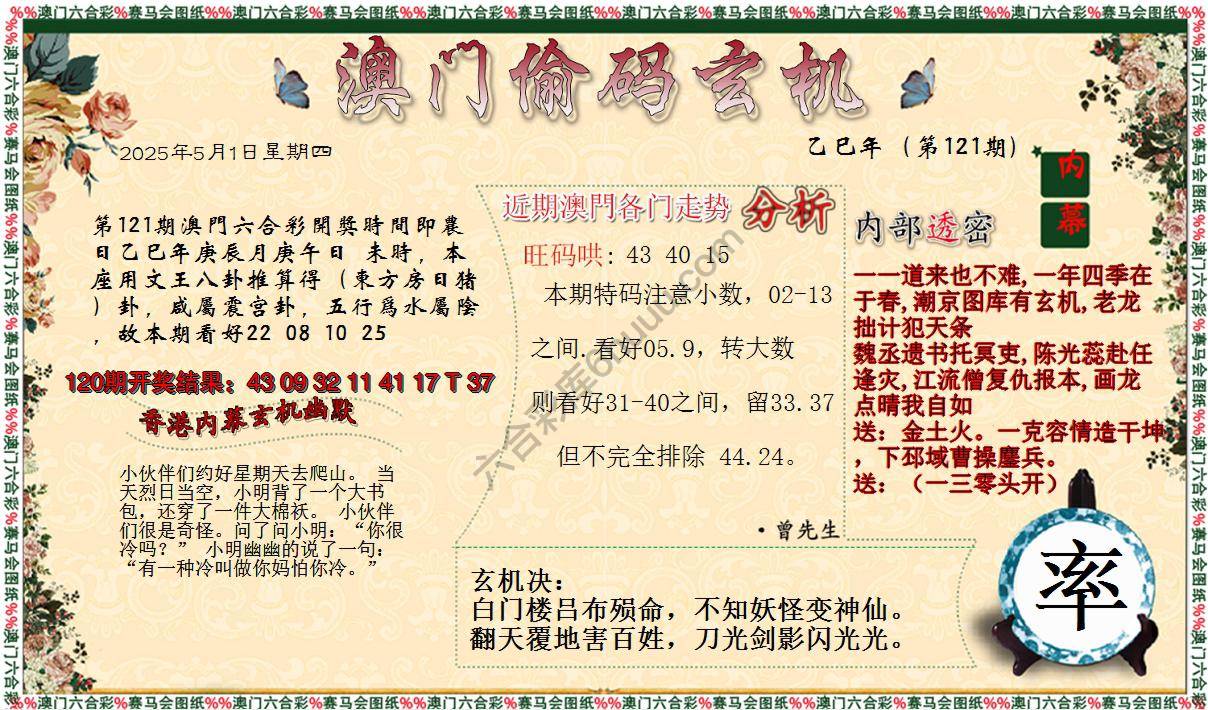 %%澳门六合彩%赛马会图纸%%澳门六合彩%赛马会图纸%%澳门六合彩%赛马会图纸%%澳门六合彩%赛马会图纸%%澳门六合彩%赛马会图纸%%澳门六合彩%赛马会图纸%%
澳门偷码玄机
2025年5月1日星期四
乙巳年（第121期）
内幕
第121期澳門六合彩開獎時間即農
日乙巳年庚辰月庚午日 未時，本
座用文王八卦推算得（東方房日猪
）卦，咸屬震宫卦，五行爲水屬陰
，故本期看好22 08 10 25
120期开奖结果：43 09 32 11 41 17 T 37
香港内幕玄机幽默
小伙伴们约好星期天去爬山。 当
天烈日当空，小明背了一个大书
包，还穿了一件大棉袄。 小伙伴
们很是奇怪。问了问小明：“你很
冷吗？” 小明幽幽的说了一句：
“有一种冷叫做你妈怕你冷。”
近期澳門各门走势 分析
旺码哄: 43 40 15
本期特码注意小数，02-13
之间.看好05.9，转大数
则看好31-40之间，留33.37
但不完全排除 44.24。
·曾先生
内部透密
一一道来也不难,一年四季在
于春,潮京图库有玄机,老龙
拙计犯天条
魏丞遗书托冥吏,陈光蕊赴任
逢灾,江流僧复仇报本,画龙
点睛我自如
送：金土火。一克容情造干坤
，下邳域曹操鏖兵。
送：（一三零头开）
玄机决：
白门楼吕布殒命，不知妖怪变神仙。
翻天覆地害百姓，刀光剑影闪光光。
率
%%澳门六合彩%赛马会图纸%%澳门六合彩%赛马会图纸%%澳门六合彩%赛马会图纸%%澳门六合彩%赛马会图纸%%澳门六合彩%赛马会图纸%%澳门六合彩%赛马会图纸%%